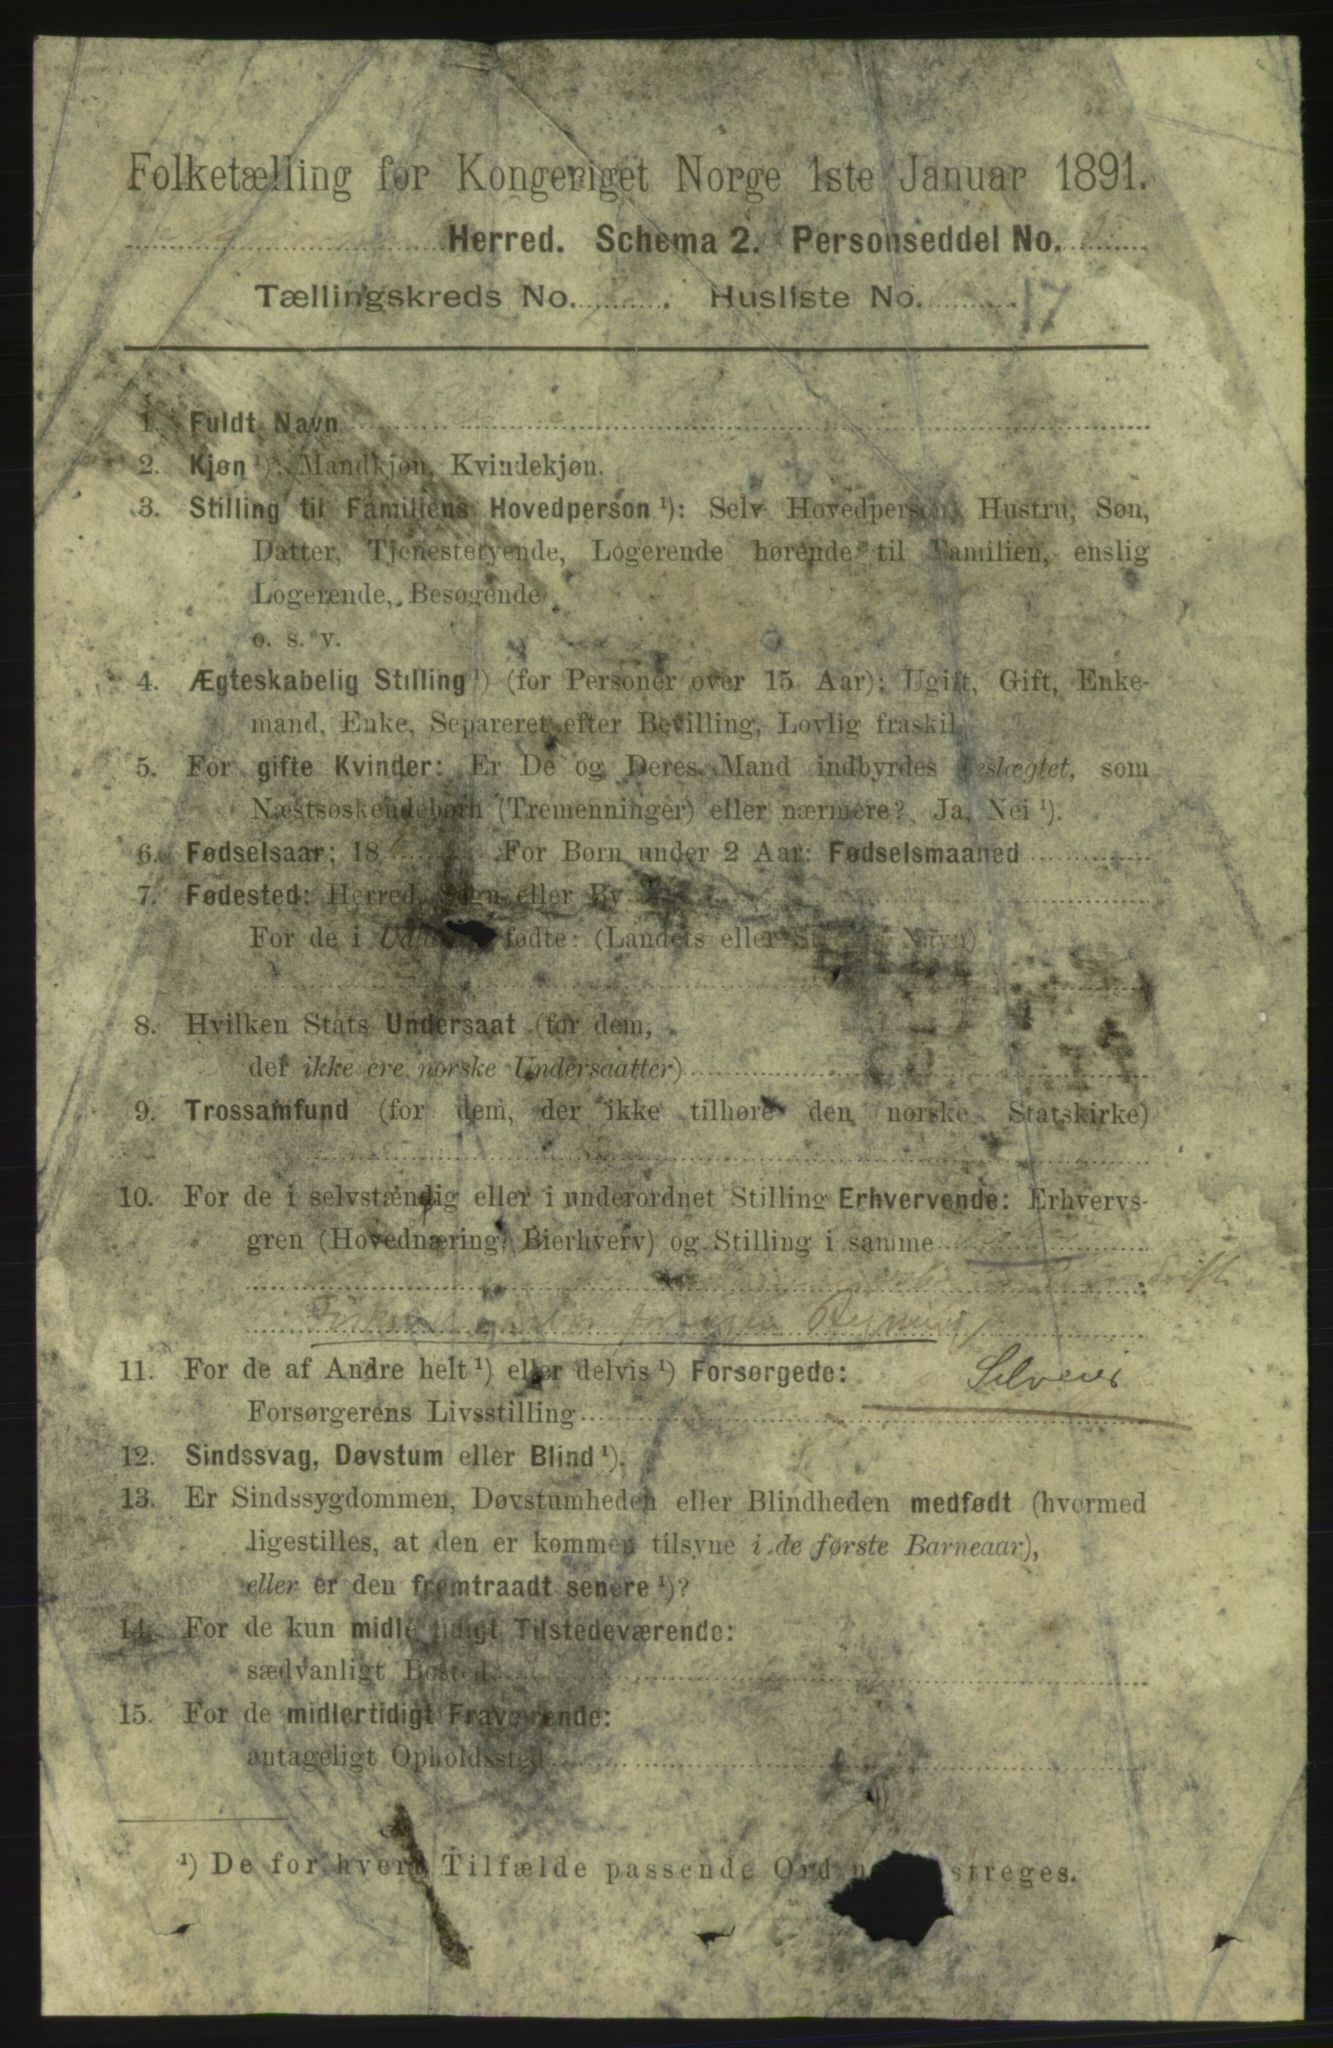 Folketælling for Kongeriget Norge 1ste Januar 1891.
Herred. Schema 2. Personseddel No.
Tællingskreds No. 2. Husliste No. 17
1. Fuldt Navn
2. Kjøn ¹): Mandkjøn, Kvindekjøn.
3. Stilling til Familiens Hovedperson ¹): Selv Hovedperson, Hustru, Søn,
Datter, Tjenestetyende, Logerende hørende til Familien, enslig
Logerende, Besøgende
o. s. v.
4. Ægteskabelig Stilling ¹) (for Personer over 15 Aar): Ugift, Gift, Enke-
mand, Enke, Separeret efter Bevilling, Lovlig fraskil
5. For gifte Kvinder: Er De og Deres Mand indbyrdes beslægtet, som
Næstsøskendebørn (Tremenninger) eller nærmere? Ja, Nei ¹).
6. Fødselsaar: 18 For Børn under 2 Aar: Fødselsmaaned
7. Fødested: Herred, Sogn eller By
For de i Udlandet fødte: (Landets eller Stedets Navn)
8. Hvilken Stats Undersaat (for dem,
der ikke ere norske Undersaatter)
9. Trossamfund (for dem, der ikke tilhøre den norske Statskirke)
10. For de i selvstændig eller i underordnet Stilling Erhvervende: Erhvervs-
gren (Hovednæring, Bierhverv) og Stilling i samme
drift
for egen Regning
11. For de af Andre helt ¹) eller delvis ¹) Forsørgede: Selveier
Forsørgerens Livsstilling
12. Sindssvag, Døvstum eller Blind ¹).
13. Er Sindssygdommen, Døvstumheden eller Blindheden medfødt (hvormed
ligestilles, at den er kommen tilsyne i de første Barneaar),
eller er den fremtraadt senere ¹)?
14. For de kun midlertidigt Tilstedeværende:
sædvanligt Bosted
15. For de midlertidigt Fraværende:
antageligt Opholdssted
¹) De for hvert Tilfælde passende Ord understreges.